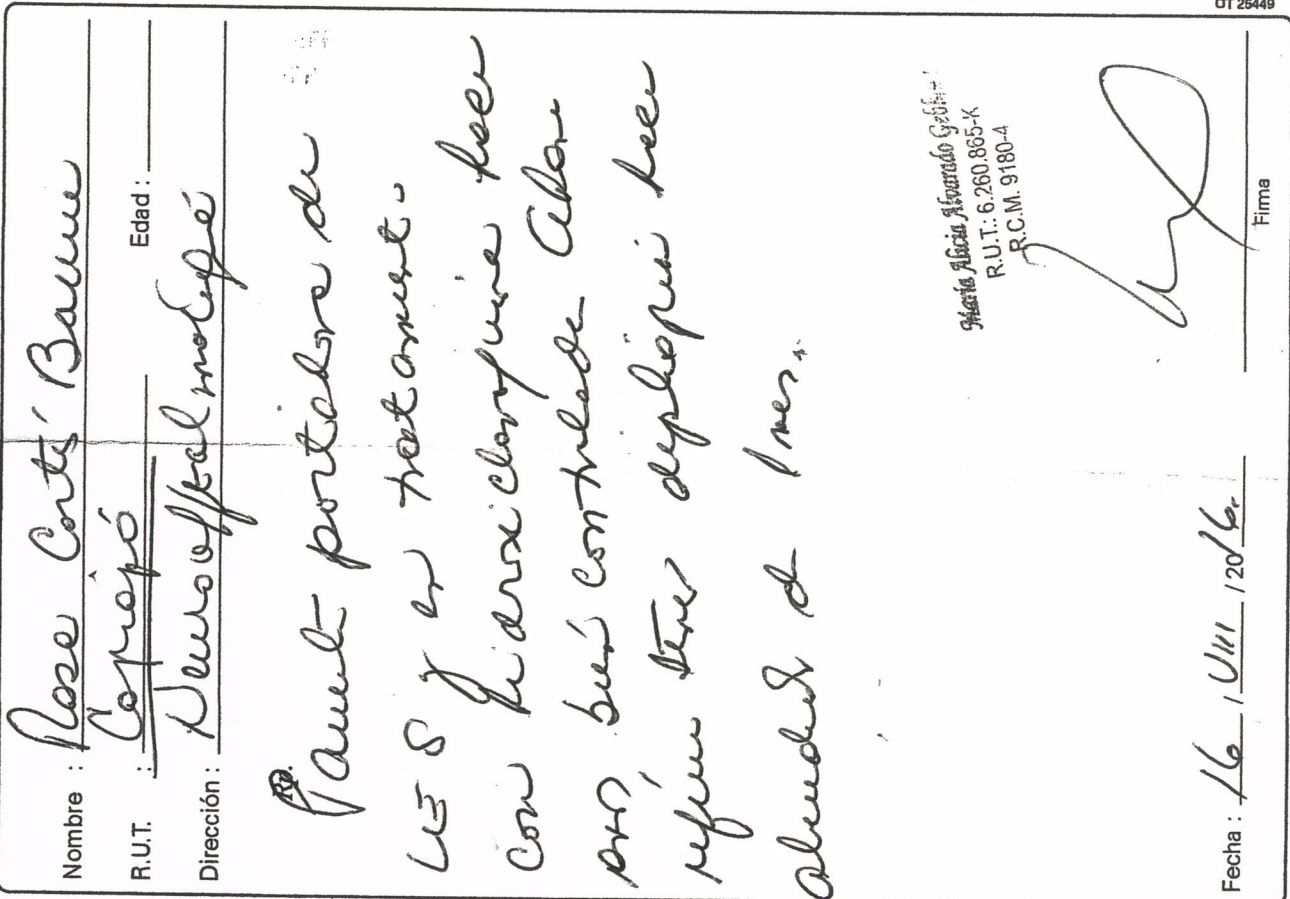 OT 25449
Nombre : Rosa Cortés
R.U.T. : Copiapó Edad :
Dirección : Neurooftalmología
Rp.
Paciente portadora de
LES y en tratamiento
con hidroxicloroquina hace
años, bien controlada. Ahora
refiere tener diplopia hace
alrededor de 1 mes.
María Alicia Alvarado
R.U.T.: 6.260.865-K
R.C.M. 9180-4
Fecha : 16 / VIII / 2016. Firma